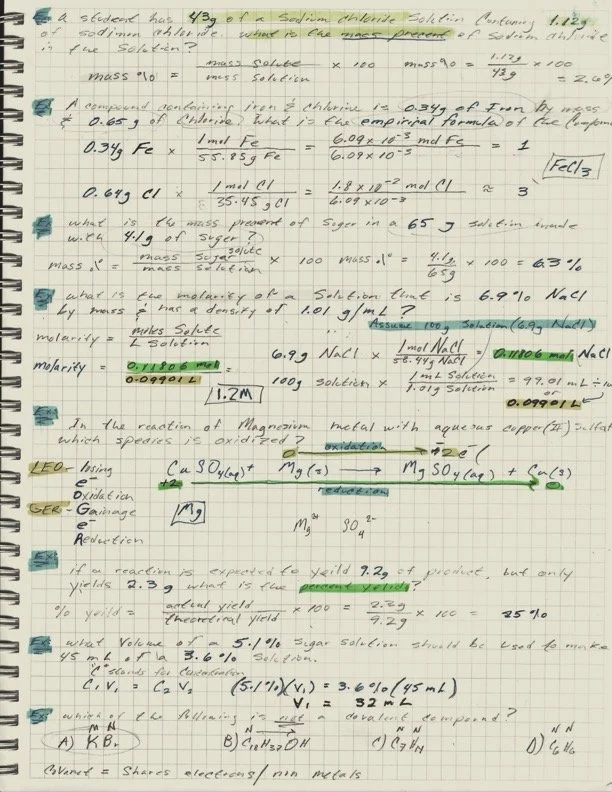 Ex: A student has 43g of a sodium chloride solution containing 1.12g
of sodimon chloride. what is the mass precent of sodium chloride
in the solution?
mass % = mass solute / mass solution × 100 mass % = 1.12g / 43g × 100 = 2.6%
Ex: A compound containing iron & chlorine is 0.34g of Iron by mass
& 0.65g of chlorine. What is the empirical formula of the compound
0.34g Fe × 1 mol Fe / 55.85g Fe = 6.09 × 10⁻³ mol Fe / 6.09 × 10⁻³ = 1
FeCl3
0.64g Cl × 1 mol Cl / 35.45 g Cl = 1.8 × 10⁻² mol Cl / 6.09 × 10⁻³ ≈ 3
Ex: what is the mass precent of suger in a 65 g solution made
with 4.1g of suger?
mass % = mass sugar solute / mass solution × 100 mass % = 4.1g / 65g × 100 = 6.3%
Ex: what is the molarity of a solution that is 6.9% NaCl
by mass & has a density of 1.01 g/mL?
Assume 100g solution (6.9g NaCl)
molarity = moles solute / L solution
6.9g NaCl × 1 mol NaCl / 58.44g NaCl = 0.11806 mol NaCl
molarity = 0.11806 mol / 0.09901 L = 1.2M
100g solution × 1 mL solution / 1.01g solution = 99.01 mL
or
0.09901 L
Ex: In the reaction of Magnesium metal with aqueous copper(II) sulfat
which species is oxidized?
0 oxidation +2 e⁻
LEO - losing CuSO4(aq) + Mg(s) → MgSO4(aq) + Cu(s)
e⁻ +2 reduction 0
Oxidation
GER - Gainage Mg
e⁻ Mg²⁺ SO4²⁻
Reduction
Ex: if a reaction is expected to yeild 9.2g of product, but only
yields 2.3g what is the percent yeild?
% yeild = actual yield / theoretical yield × 100 = 2.3g / 9.2g × 100 = 25%
Ex: what volume of a 5.1% sugar solution should be used to make
45 mL of a 3.6% solution.
"C" stands for concentration
C1V1 = C2V2 (5.1%)(V1) = 3.6% (45 mL)
V1 = 32 mL
Ex: which of the following is not a covalent compound?
M N N N N N N
A) KBr B) C18H37OH C) C7H D) C6H6
Covanet = Shares electrons / non metals